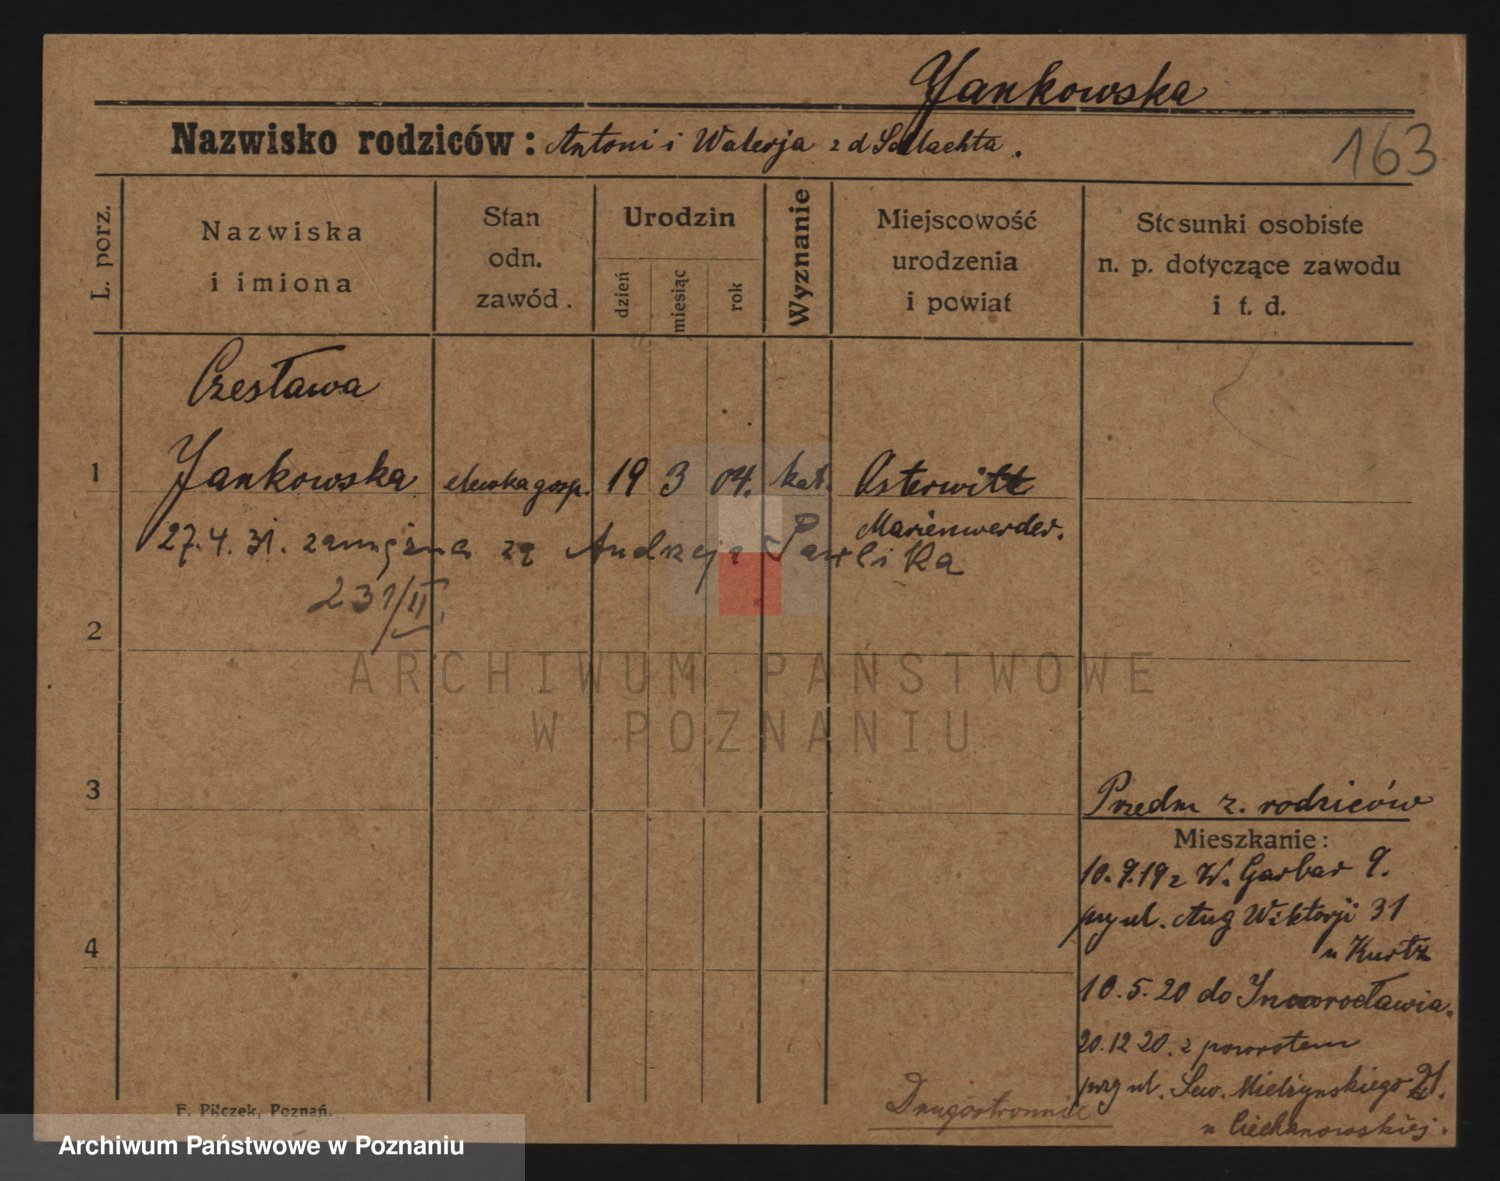 Jankowska
Nazwisko rodziców: Antoni i Walerja z d Szlachta.
163
L. porz.
Nazwiska i imiona
Stan odn. zawód.
Urodzin
dzień
miesiąc
rok
Wyznanie
Miejscowość urodzenia i powiat
Stosunki osobiste n. p. dotyczące zawodu i t. d.
Czesława
1 Jankowska elewka gosp. 19 3 04. kat. Osterwitt
Marienwerder.
27.4.31. zamężna za Andrzeja Pawlika
231/II
2
3
4
Przedm z. rodziców
Mieszkanie:
10.9.19 z W. Garbar 9.
przy ul. Aug Wiktorji 31
u Kurtz
10.5.20 do Inowrocławia.
20.12 20. z powrotem
przy ul. Sew. Mielżynskiego 21.
u Ciechanowskiej.
Drugostronnie
F. Pilczek, Poznań.
ARCHIWUM PAŃSTWOWE
W POZNANIU
Archiwum Państwowe w Poznaniu